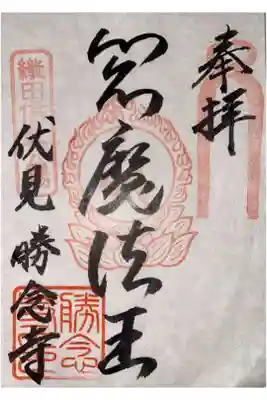 奉拝
閻魔法王
織田
伏見 勝念寺
勝念